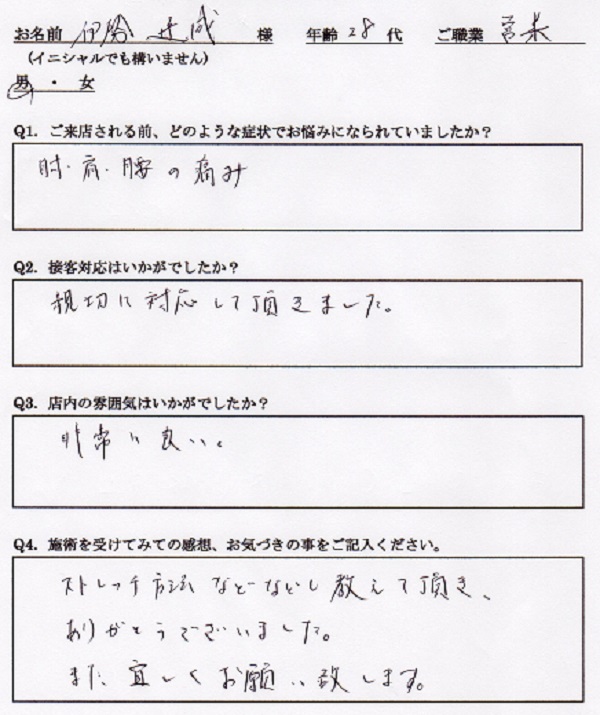 お名前 伊勢 達成 様 年齢 28 代 ご職業 営業
(イニシャルでも構いません)
男 ・ 女
Q1. ご来店される前、どのような症状でお悩みになられていましたか?
肘・肩・腰の痛み
Q2. 接客対応はいかがでしたか?
親切に対応して頂きました。
Q3. 店内の雰囲気はいかがでしたか?
非常に良い。
Q4. 施術を受けてみての感想、お気づきの事をご記入ください。
ストレッチ方法など 教えて頂き、
ありがとうございました。
また宜しくお願い致します。